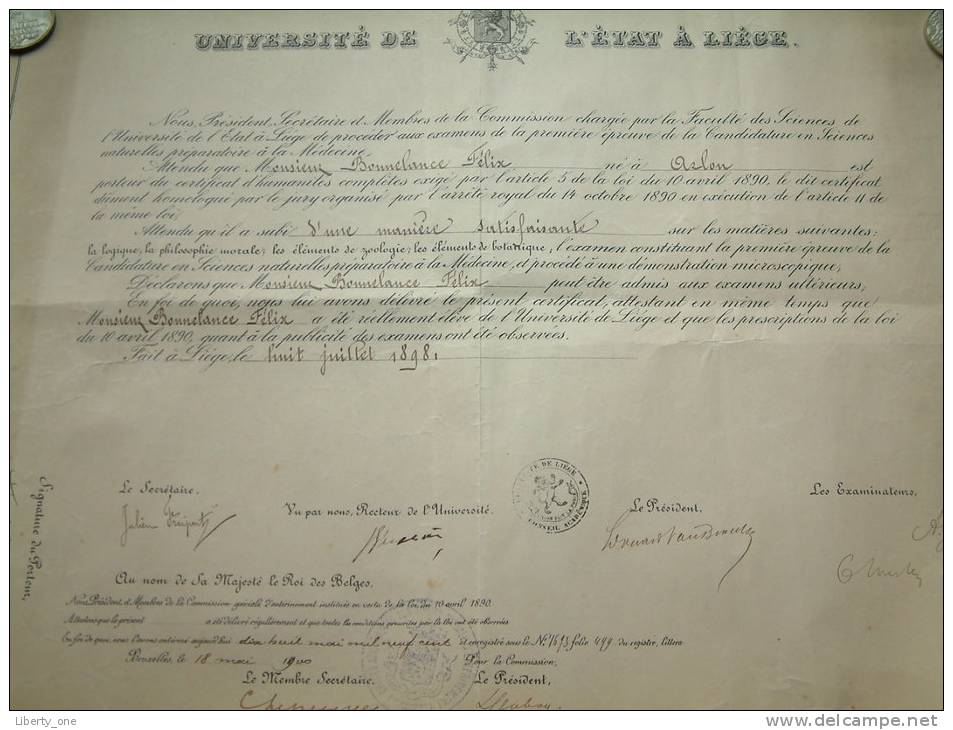 UNIVERSITÉ DE L'ÉTAT À LIÉGE.
Nous, Président, Secrétaire et Membres de la Commission chargée par la Faculté des Sciences de
l'Université de l'Etat à Liége de procéder aux examens de la première épreuve de la Candidature en Sciences
naturelles préparatoire à la Médecine,
Attendu que Monsieur Bonnelance Félix né à Arlon est
porteur du certificat d'humanités complètes exigé par l'article 5 de la loi du 10 avril 1890, le dit certificat
dûment homologué par le jury organisé par l'arrêté royal du 14 octobre 1890 en exécution de l'article 11 de
la même loi;
Attendu qu'il a subi d'une manière satisfaisante sur les matières suivantes:
la logique, la philosophie morale; les éléments de zoologie; les éléments de botanique; l'examen constituant la première épreuve de la
Candidature en Sciences naturelles préparatoire à la Médecine, et procédé à une démonstration microscopique,
Déclarons que Monsieur Bonnelance Félix peut être admis aux examens ultérieurs;
En foi de quoi, nous lui avons délivré le présent certificat, attestant en même temps que
Monsieur Bonnelance Félix a été réellement élève de l'Université de Liége et que les prescriptions de la loi
du 10 avril 1890, quant à la publicité des examens ont été observées.
Fait à Liége, le huit juillet 1898.
Signature du Porteur,
Le Secrétaire,
Julien Fraipont
Vu par nous, Recteur de l'Université.
DE LIÉGE
CONSEIL ACADÉMIQUE
Le Président,
Les Examinateurs,
Au nom de Sa Majesté le Roi des Belges.
Nous Président et Membres de la Commission spéciale d'entérinement instituée en vertu de la loi du 10 avril 1890.
Attendu que le présent a été délivré régulièrement et que toutes les conditions prescrites par la loi ont été observées
En foi de quoi, nous l'avons entériné aujourd'hui dix huit mai mil neuf cent et enregistré sous le N° 1613 folio 499 du registre, littera
Bruxelles, le 18 mai 1900
Pour la Commission,
Le Membre Secrétaire,
Le Président,
Liberty_one
delcampe.net